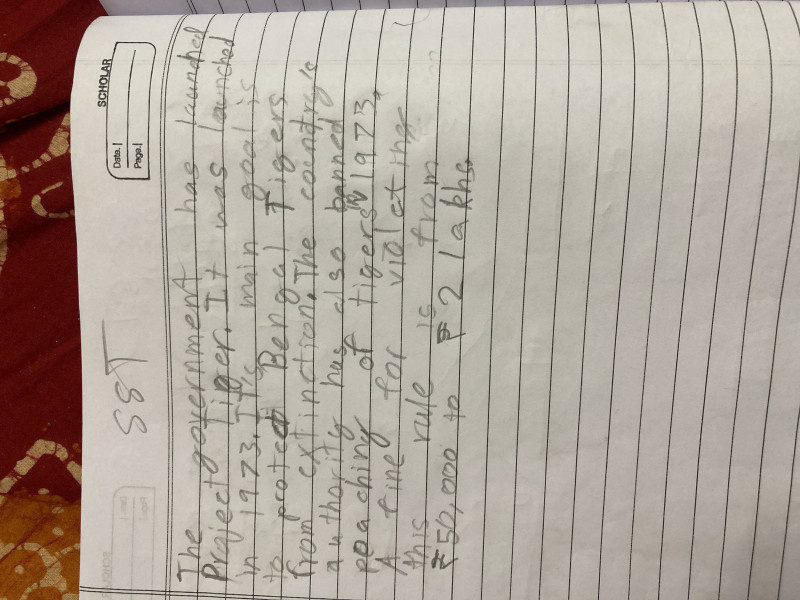 SCHOLAR
Date.
Page.
SST
The government has launched
Project Tiger. It was launched
in 1973. It's main goal is
to protect Bengal Tigers
from extinction. The country's
authority has also banned
poaching of tigers in 1973.
A fine for violating
this rule is from
₹50,000 to ₹ 2 lakhs.